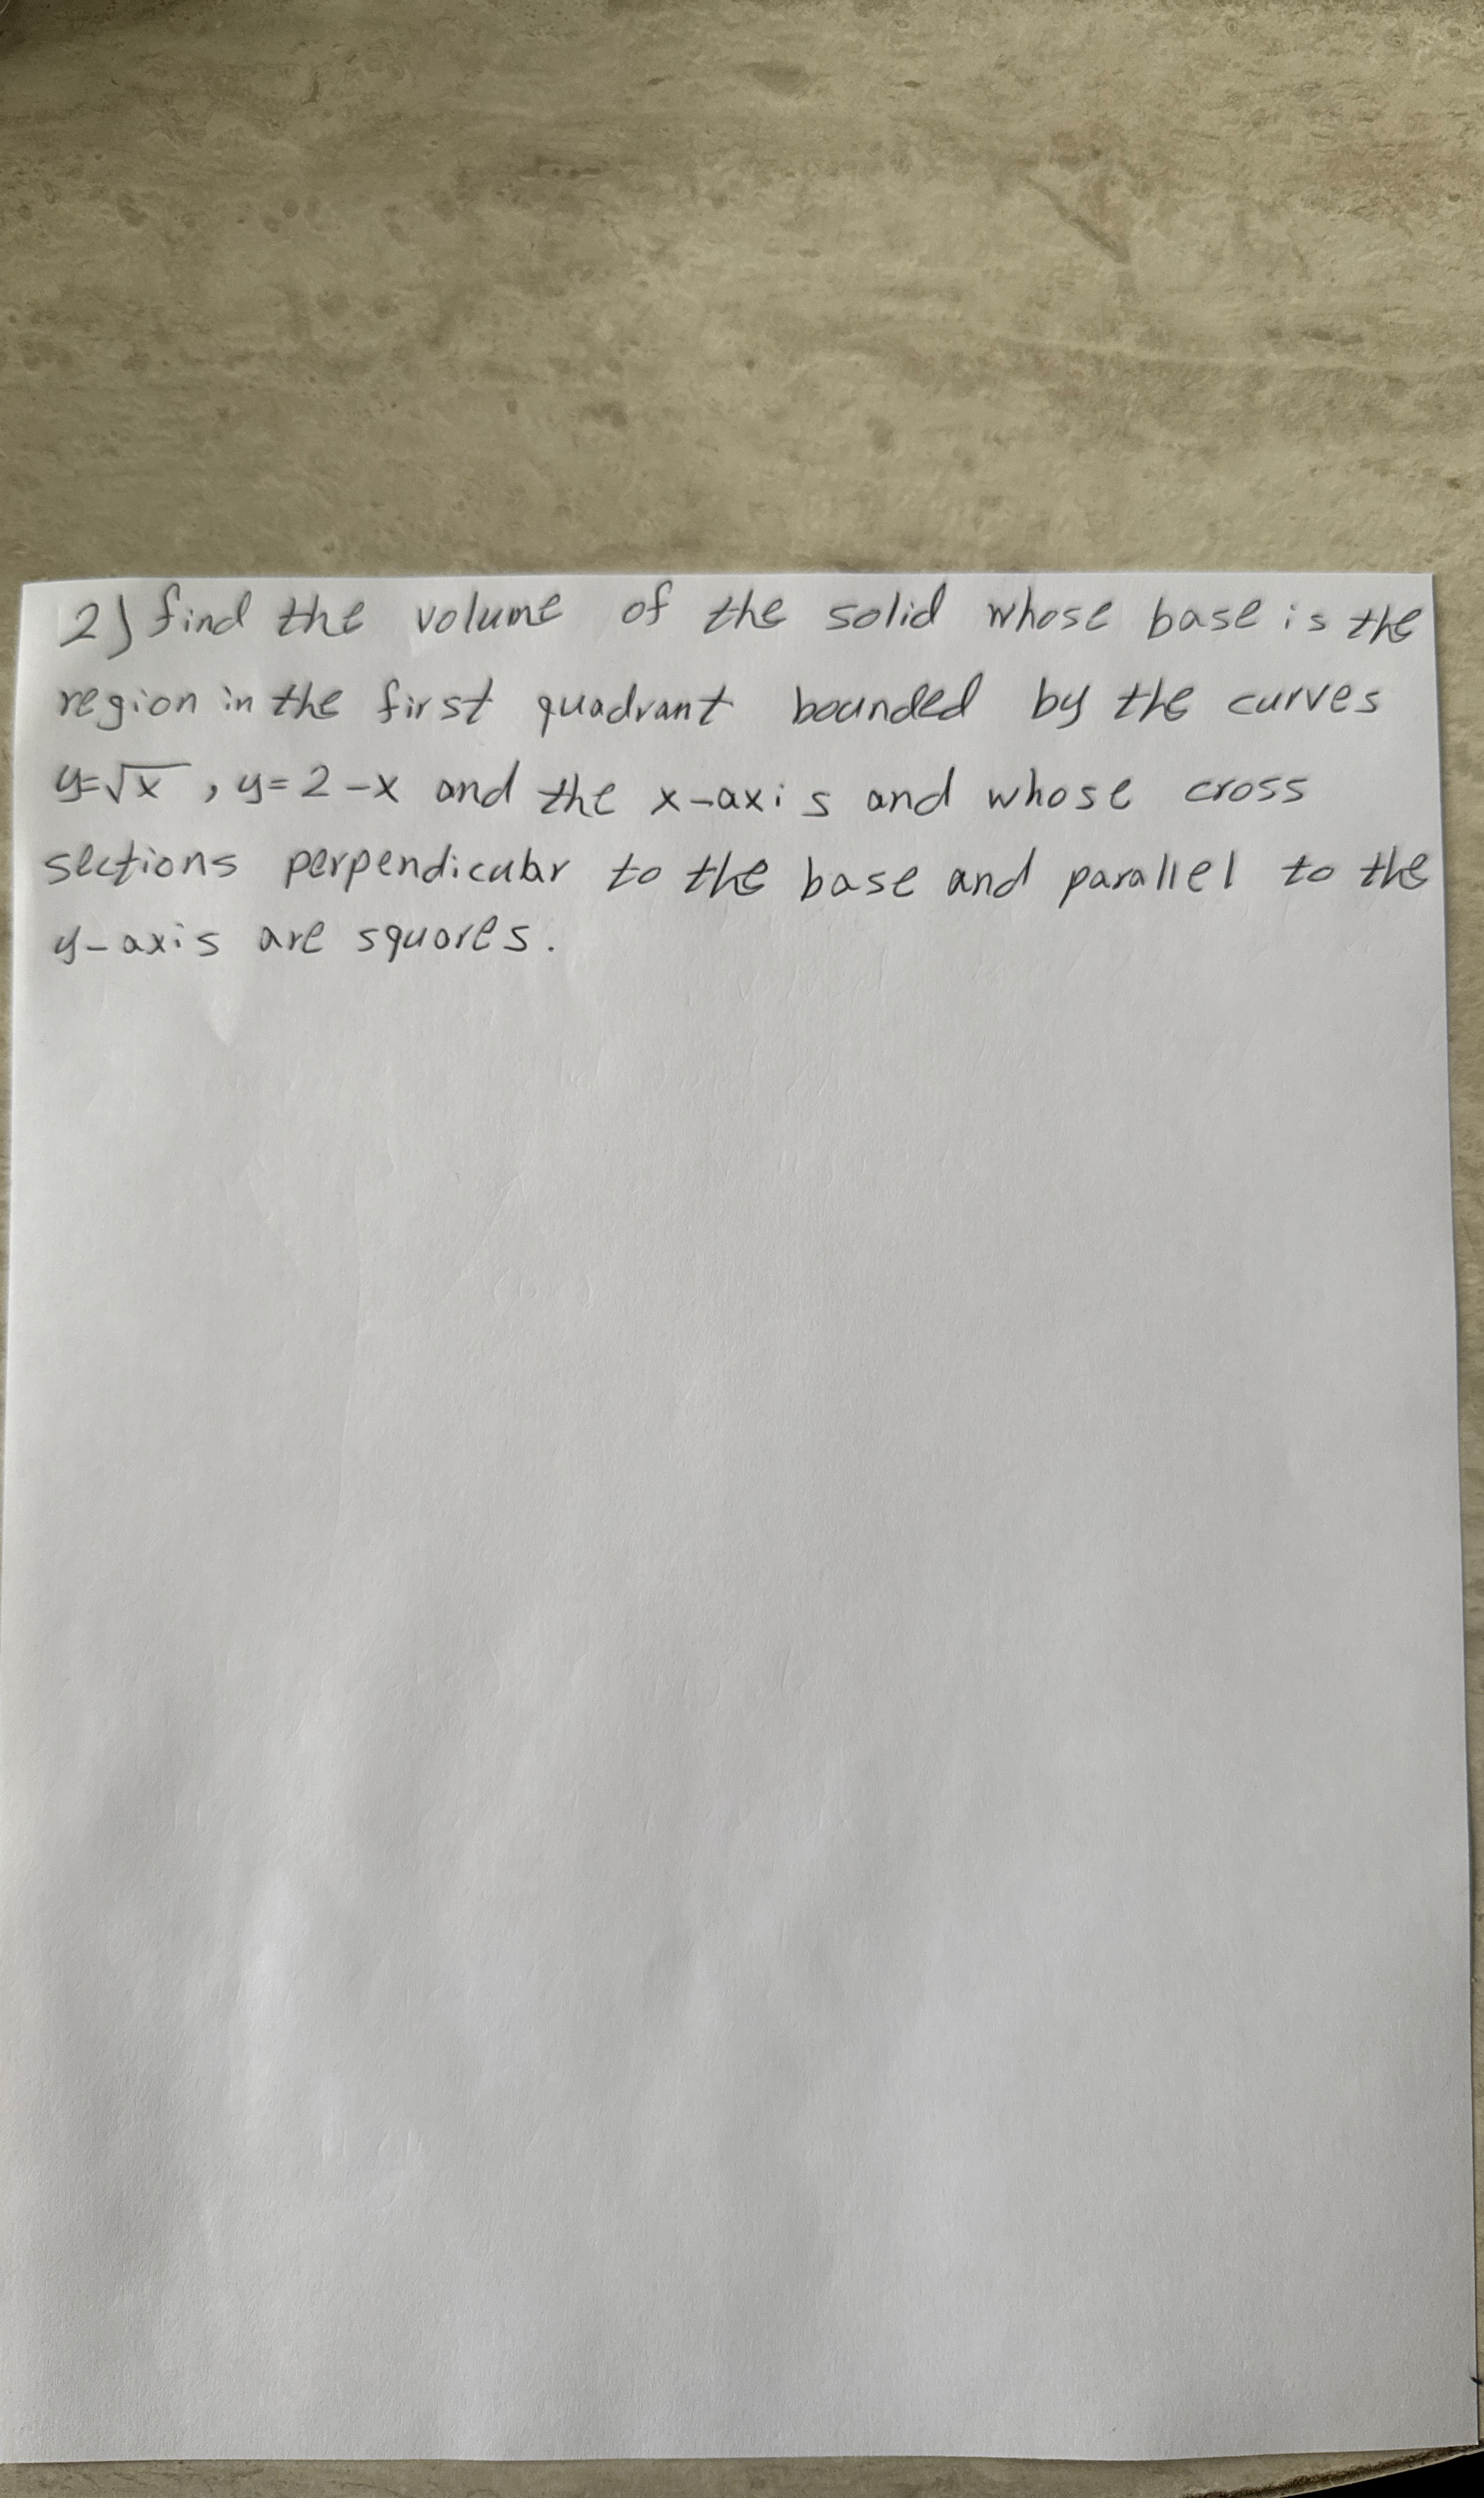 2) find the volume of the solid whose base is the
region in the first quadrant bounded by the curves
y=√x , y=2-x and the x-axis and whose cross
sections perpendicular to the base and parallel to the
y-axis are squares.